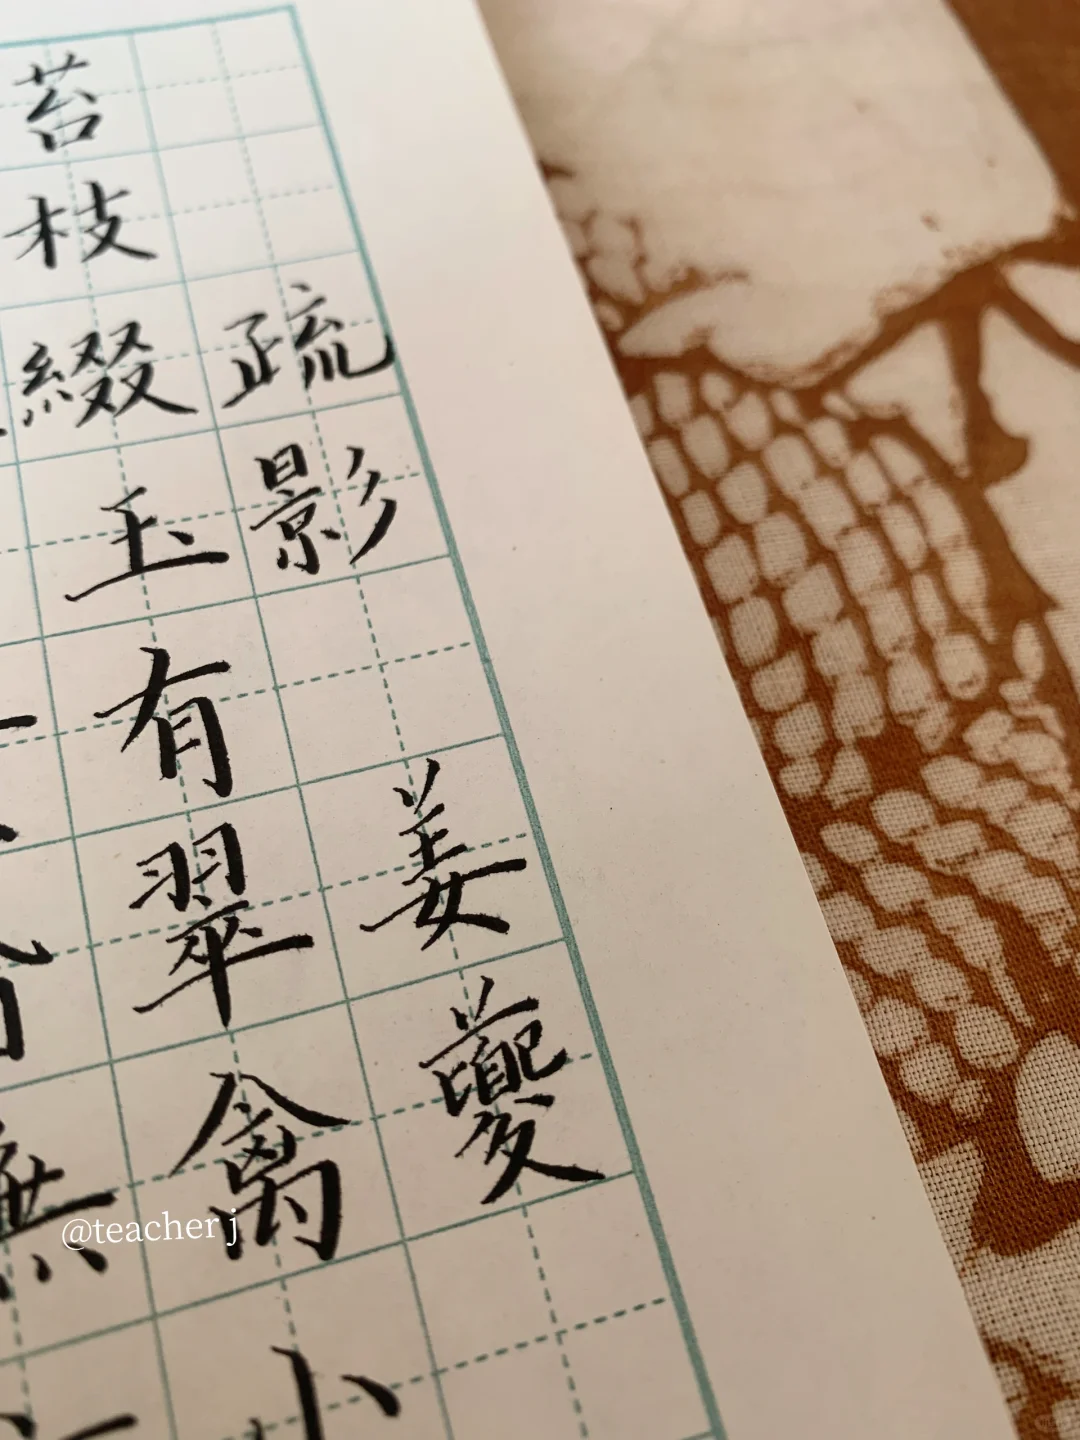 疏影 姜夔
苔枝綴玉有翠禽小
無
@teacher j